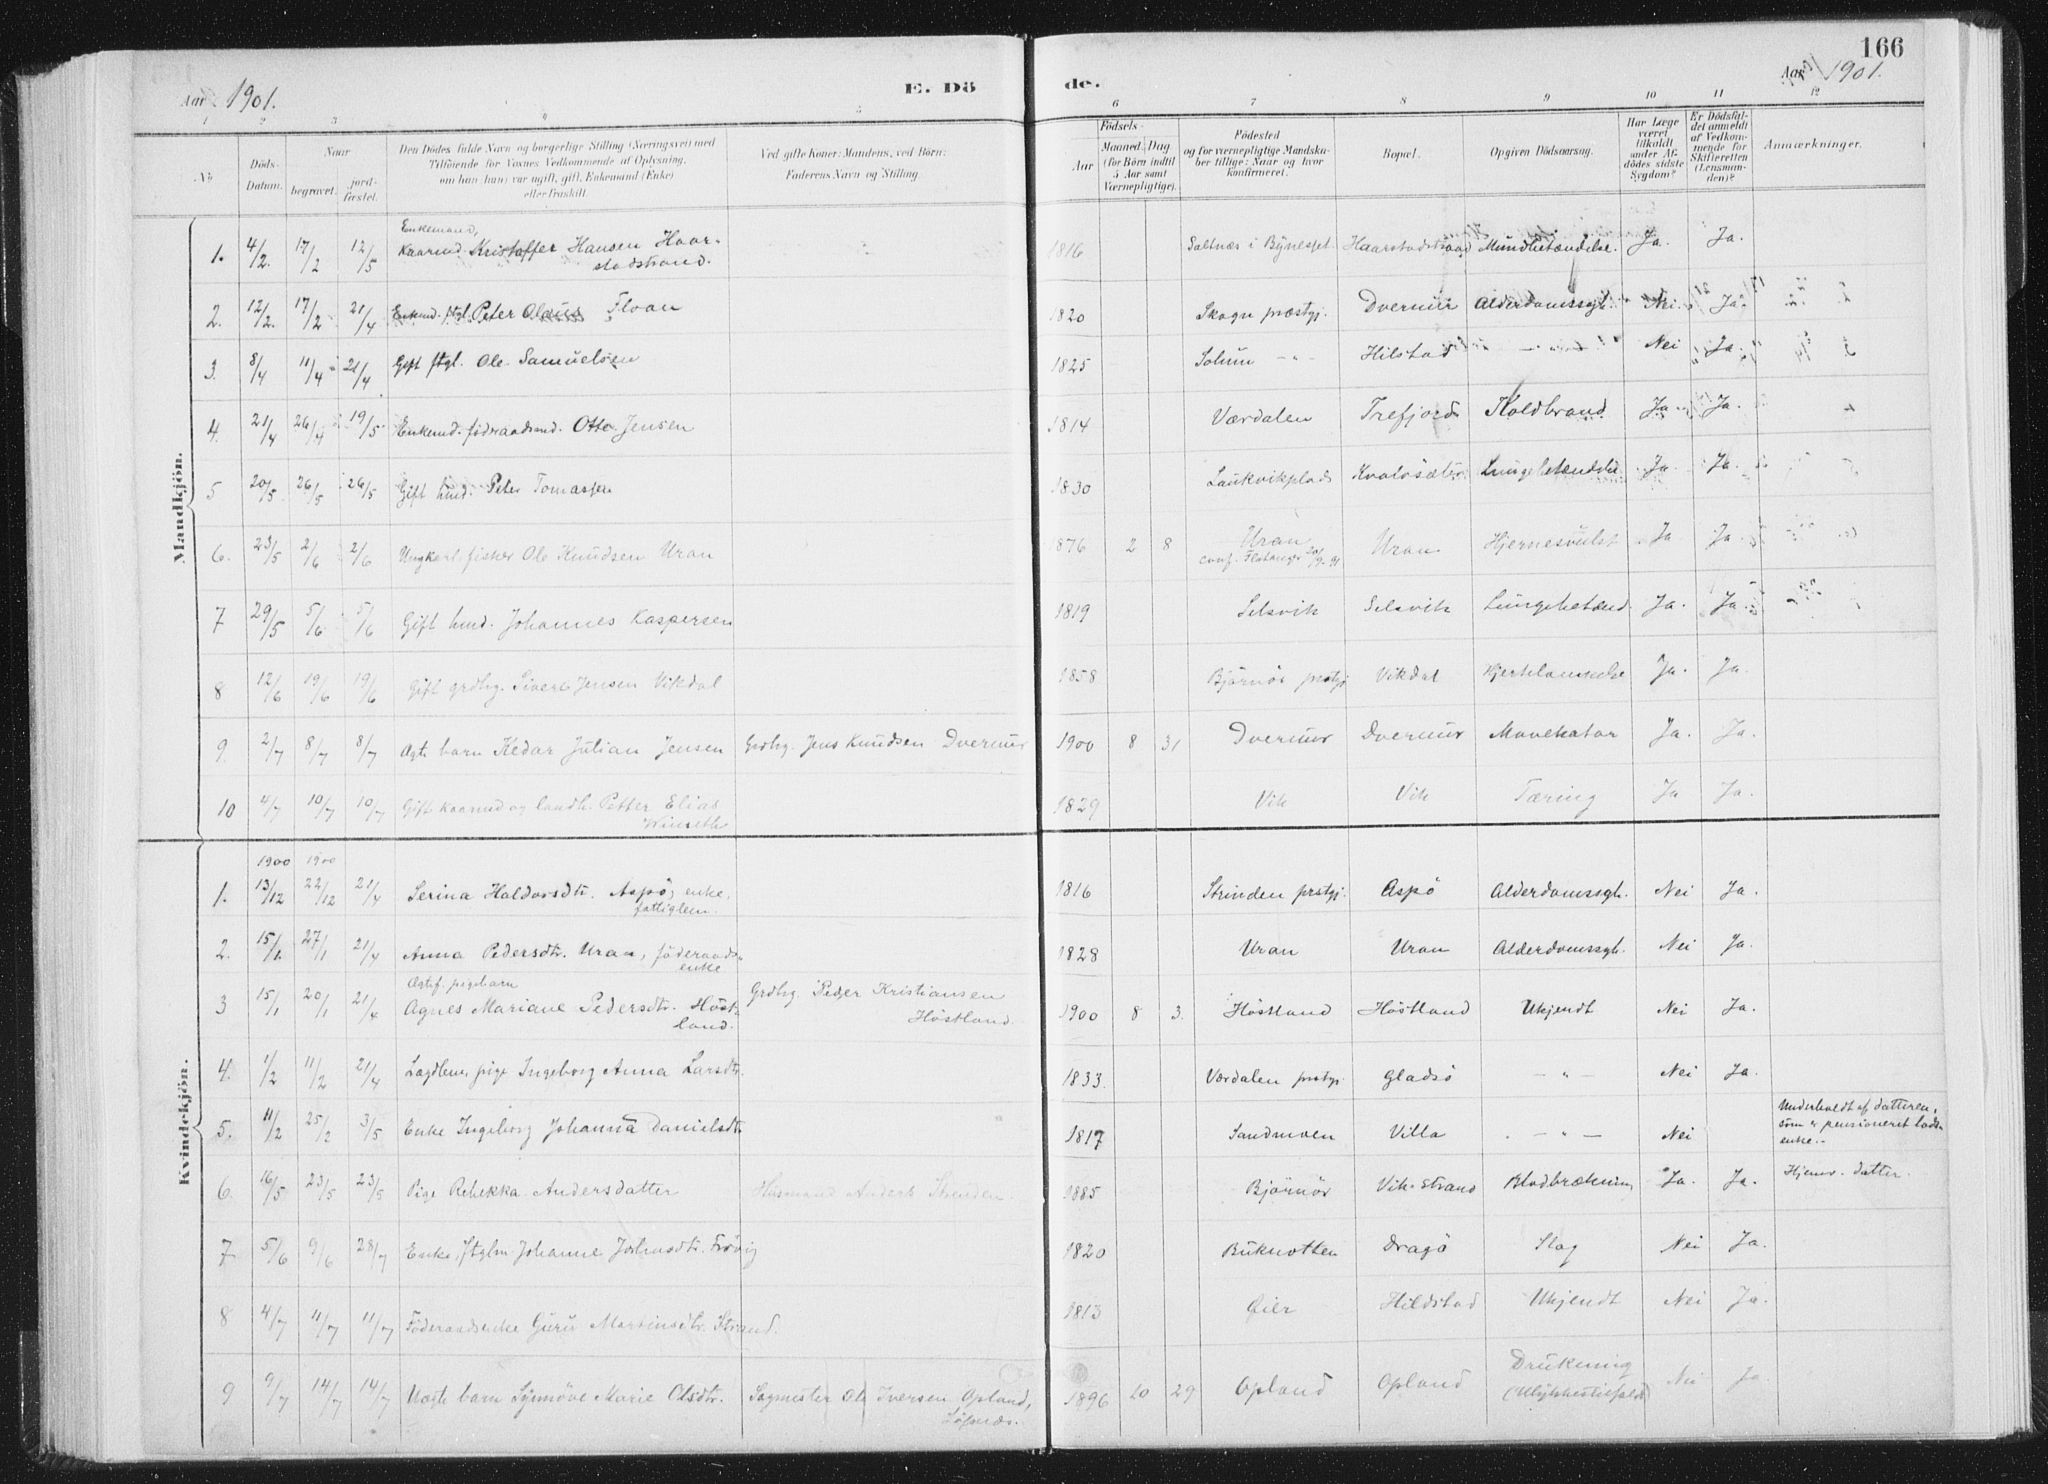 166
Aar 1901.
E. Dö
de.
Aar 1901.
1 2 3 4 5 6 7 8 9 10 11 12
No
Döds-Datum.
Naar
begravet.
jord-fæstet.
Den Dödes fulde Navn og borgerlige Stilling (Næringsvei) med
Tilföiende for Voxnes Vedkommende af Oplysning,
om han (hun) var ugift, gift, Enkemand (Enke)
eller fraskilt.
Ved gifte Koner: Mandens, ved Börn:
Faderens Navn og Stilling.
Födsels-
Aar
Maaned. Dag
(for Börn indtil
5 Aar samt
Værnepligtige).
Födested
og for værnepligtige Mandska-
ber tillige: Naar og hvor
konfirmeret.
Bopæl.
Opgiven Dödsaarsag.
Har Læge
været
tilkaldt
under Af-
dödes sidste
Sygdom?
Er Dödsfal-
det anmeldt
af Vedkom-
mende for
Skifteretten
(Lensman-
den)?
Anmærkninger.
Mandkjön.
1. 4/2. 17/2 12/5 Enkemand, Kaarmd. Kristoffer Hansen Haar-
stadstrand. 1816 Saltnæs i Bynesset Haarstadstrand Mundbetændelse. Ja. Ja.
2. 12/2. 17/2 21/4 Enkemd. ftgl. Peter Olaus Floan 1820 Skogn præstgj. Dvernur Alderdomssygd. Nei Ja.
3. 8/4 11/4 21/4 Gift ftgl. Ole Samuelsen 1825 Solum -"- Hilstad -"- Nei Ja.
4. 21/4 26/4 19/5 Enkemd. föderaadsmd. Otto Jensen 1814 Værdalen Trefjord Koldbrand Ja Ja.
5 20/5. 26/5 26/5 Gift husmd. Peter Tomassen 1830 Laukvikplads Kvalosæter Lungebetændelse Ja. Ja.
6. 23/5 2/6 2/6 Ungkarl fisker Ole Knudsen Uran 1876 2 8 Uran
conf. Flatanger 20/9-91 Uran. Hjernesvulst Ja Ja.
7 29/5 5/6 5/6 Gift husmd. Johannes Kaspersen 1819 Selsvik Selsvik Lungebetænd. Ja. Ja.
8 12/6 19/6 19/6 Gift grdbrg. Sivert Jensen Vikdal 1858 Bjørnør prstgj. Vikdal Hjertelammelse Ja. Ja.
9. 2/7 8/7 8/7 Ægte barn Kedar Julian Jensen Grdbrg. Jens Knudsen Dvernur 1900 8 31 Dvernur Dvernur Mavekatar Ja. Ja.
10 4/7 10/7 10/7 Gift kaarmd og landh. Petter Elias
Winseth 1829 Vik Vik Tæring Ja Ja.
Kvindekjön.
1. 1900 13/12 1900 22/12 21/4 Serina Haldorsdtr. Aspö, enke,
fattiglem. 1816 Strinden prstgj. Aspö Alderdomssygd. Nei Ja.
2. 15/1. 27/1 21/4 Anna Pedersdtr. Uran, föderaads-
enke 1828 Uran Uran Alderdomssygd. Nei Ja.
3 15/1 20/1 21/4 Ægtef. pigebarn
Agnes Mariane Pedersdtr. Höst-
land. Grdbrg. Peder Kristiansen
Höstland. 1900 8 3. Höstland Höstland Ukjendt Nei Ja.
4. 1/2 11/2 21/4 Lægdlem, pige Ingeborg Anna Larsdtr. 1833. Værdalen prstgj. Gladsö -"- Nei Ja.
5. 11/2 25/2 3/5 Enke Ingeborg Johanna Danielsdtr. 1817 Sandmoen Villa -"- Nei Underholdt af datteren,
som er pensioneret lods-
enke.-
6. 16/5 23/5 23/5 Pige Rebekka Andersdatter Husmand Anders Stranden 1885 Bjørnör Vik-Strand Blodbrækning Ja. Ja. Hjemv. datter.
7 5/6 9/6 28/7 Enke, ftglm. Johanne Johnsdtr. Frövig 1820 Buknotten Dragö Slag Nei Ja.
8 4/7 11/7 11/7 Föderaadsenke Guru Martinsdtr. Strand. 1813 Øier Hildstad Ukjendt Nei Ja.
9 9/7 14/7 14/7 Uægte barn Synnöve Marie Olsdtr. Sagmester Ole Iversen Opland,
Löfsnæs. 1896 10 29 Opland Opland Drukning
(Ulykkestilfælde) Nei Ja.